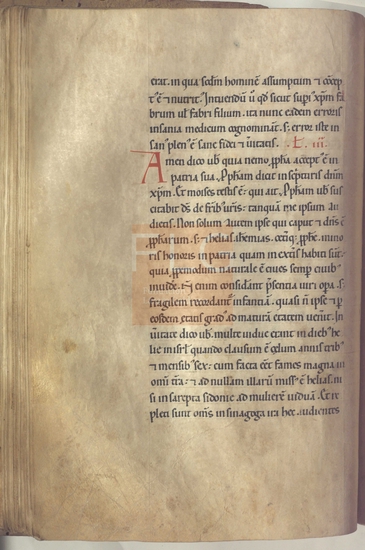 erat. in qua scdm hominē assumptum ⁊ cōcep
t' ē ⁊ nutrit'. Intuendū ū qd sicut supi' xpm fa
brum ut fabri filium. ita nunc eadem erroris
insania medicum cognominat. s; error iste in
san' plen' ē sanc fidei ⁊ uitatis.
Amen dico uob quia nemo ppha accept' ē in
patria sua. Ppham dici in scripturis dnm
xpm. Et moises testis ē qui ait. Ppham uob sus
citabit ds de frib' uris. tanquā me ipsum au
dietis. Non solum autem ipse qui caput ⁊ dns ē
ppharum. s; ⁊ helias. iheremias. ceteriq; pphe. mino
ris honoris in patria quam in extis habiti sūt.
quia ppemodum naturale ē ciues semp ciuib'
inuide. Ñ enim considant psentia uiri opa. s;
fragilem recordant' infantiā. quasi ñ ipse ⁊ p
eosdem etatis grad' ad maturā etatem uenit. In
uitate dico uob. multe uidue erant in dieb' he
lie in isrl quando clausum ē celum annis trib'
⁊ mensib' sex. cum facta eēt fames magna in
omi tra. ⁊ ad nullam illarū miss' ē helias. ni
si in sarepta sidonie ad mulierē uiduā. Et re
pleti sunt oms in sinagoga ira hec audientes